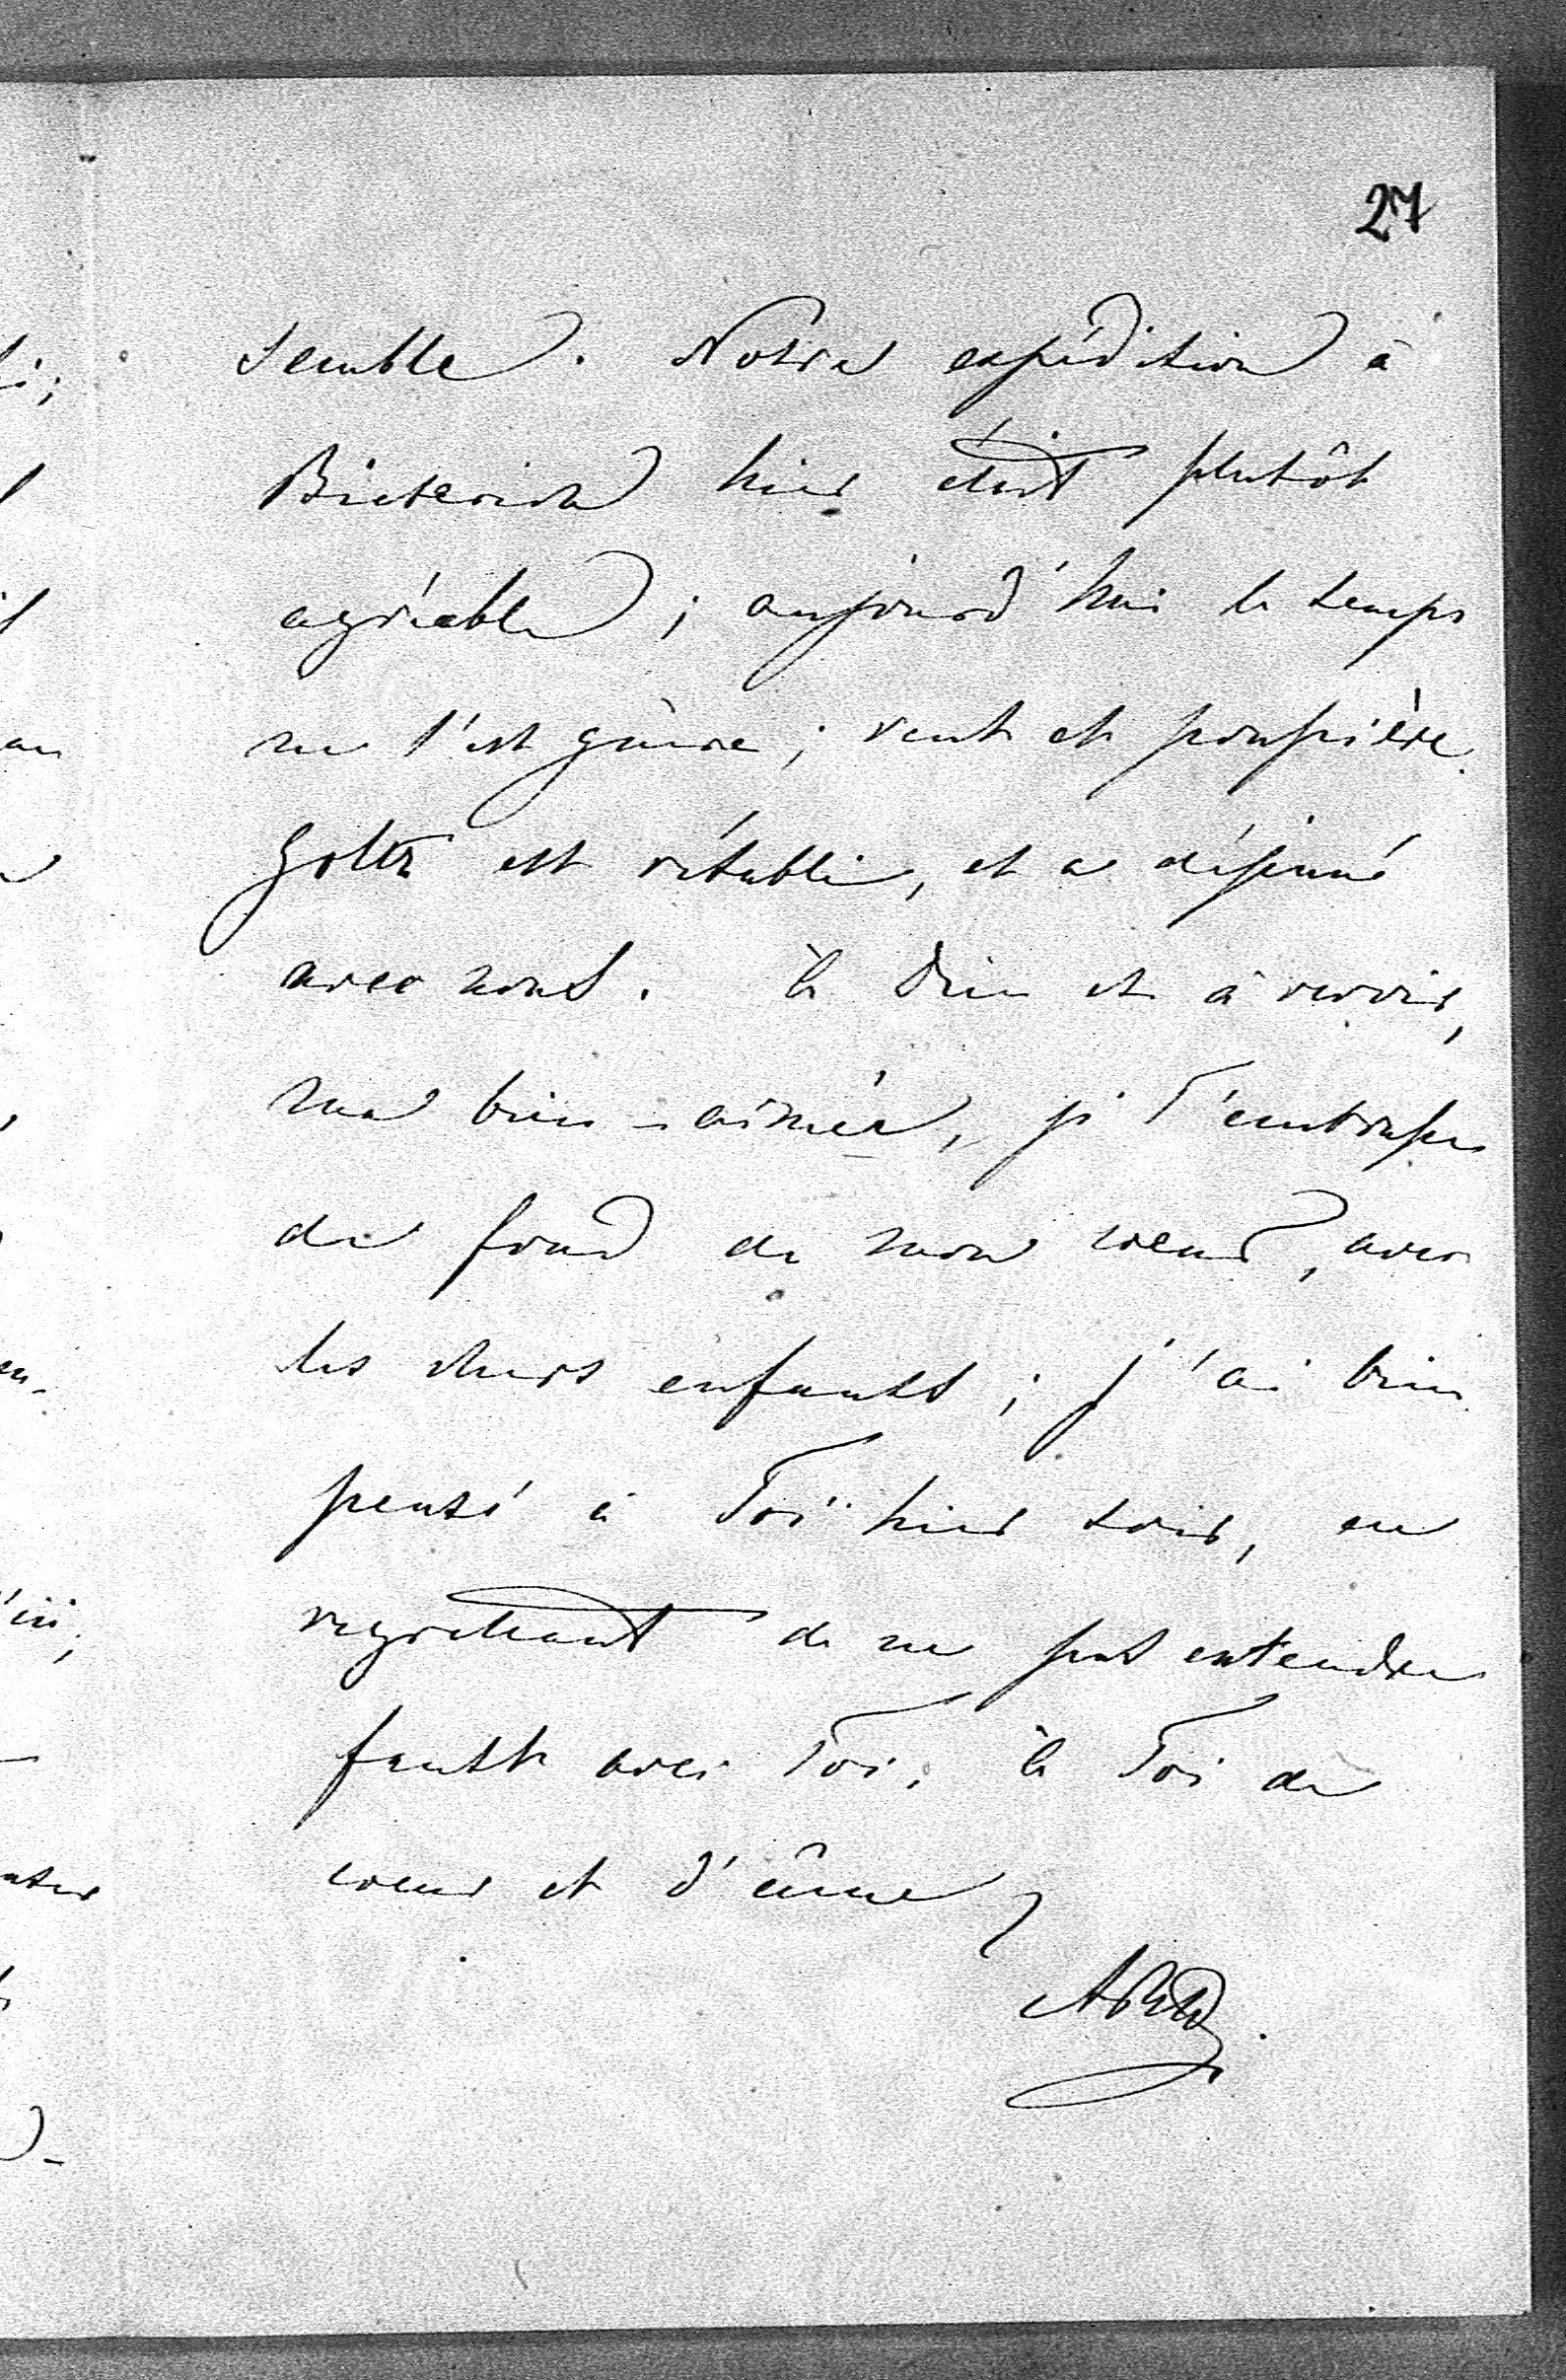 27
semble. Notre expédition à
hier était plutôt
agréable; aujourd'hui le temps
ne l'est guère; vent et poussière.
Goltz est rétabli, et a déjeuné
avec nous. à Dieu et à revoir,
ma bien-aimée, je T'embrasse
du fond de mon coeur, avec
les chers enfants; j'ai bien
pensé à Toi hier soir, en
regrettant de ne pas entendre
faust avec Toi. à Toi de
coeur et d'âme